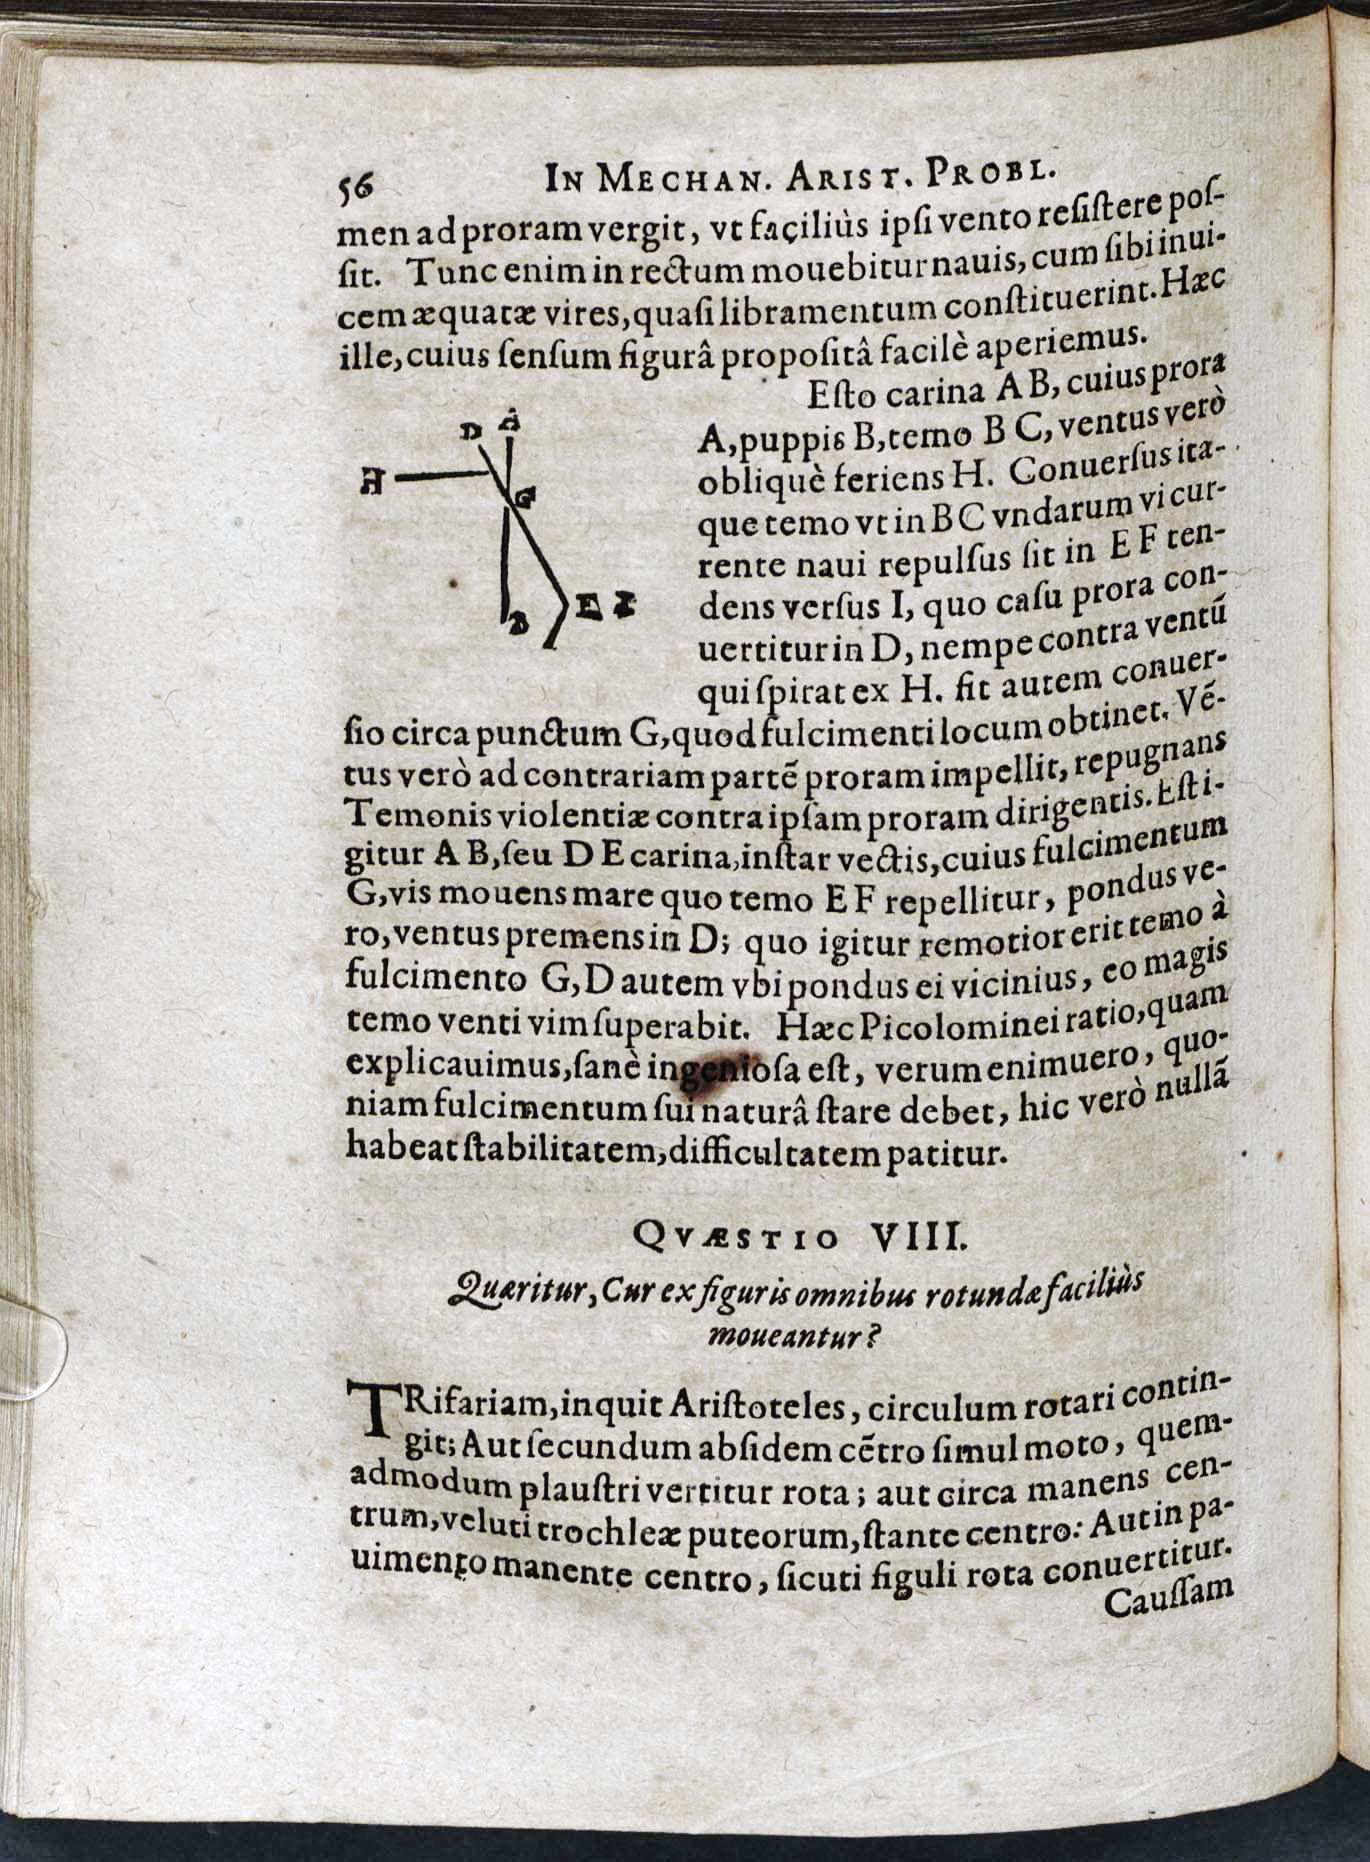 56 IN MECHAN. ARIST. PROBL.
men ad proram vergit, vt faciliùs ipsi vento resiſtere poſ-
ſit. Tunc enim in rectum mouebitur nauis, cum ſibi inui-
cem æquatæ vires, quaſi libramentum conſtituerint. Hæc
ille, cuius ſenſum figurâ propoſitâ facilè aperiemus.
Eſto carina A B, cuius prora
A, puppis B, temo B C, ventus verò
obliquè feriens H. Conuerſus ita-
que temo vt in B C vndarum vi cur-
rente naui repulſus ſit in E F ten-
dens verſus I, quo caſu prora con-
uertitur in D, nempe contra ventũ
qui ſpirat ex H. fit autem conuer-
ſio circa punctum G, quod fulcimenti locum obtinet. Vẽ-
tus verò ad contrariam partẽ proram impellit, repugnans
Temonis violentiæ contra ipſam proram dirigentis. Eſt i-
gitur A B, ſeu D E carina, inſtar vectis, cuius fulcimentum
G, vis mouens mare quo temo E F repellitur, pondus ve-
ro, ventus premens in D; quo igitur remotior erit temo à
fulcimento G, D autem vbi pondus ei vicinius, eo magis
temo venti vim ſuperabit. Hæc Picolominei ratio, quam
explicauimus, ſanè ingenioſa eſt, verum enimuero, quo-
niam fulcimentum ſui naturâ ſtare debet, hic verò nullã
habeat ſtabilitatem, difficultatem patitur.
D A
H
G
B E I
QVÆSTIO VIII.
Quæritur, Cur ex figuris omnibus rotundæ faciliùs
moueantur?
TRifariam, inquit Ariſtoteles, circulum rotari contin-
git; Aut ſecundum abſidem cẽtro ſimul moto, quem-
admodum plauſtri vertitur rota; aut circa manens cen-
trum, veluti trochleæ puteorum, ſtante centro: Aut in pa-
uimento manente centro, ſicuti figuli rota conuertitur.
Cauſſam